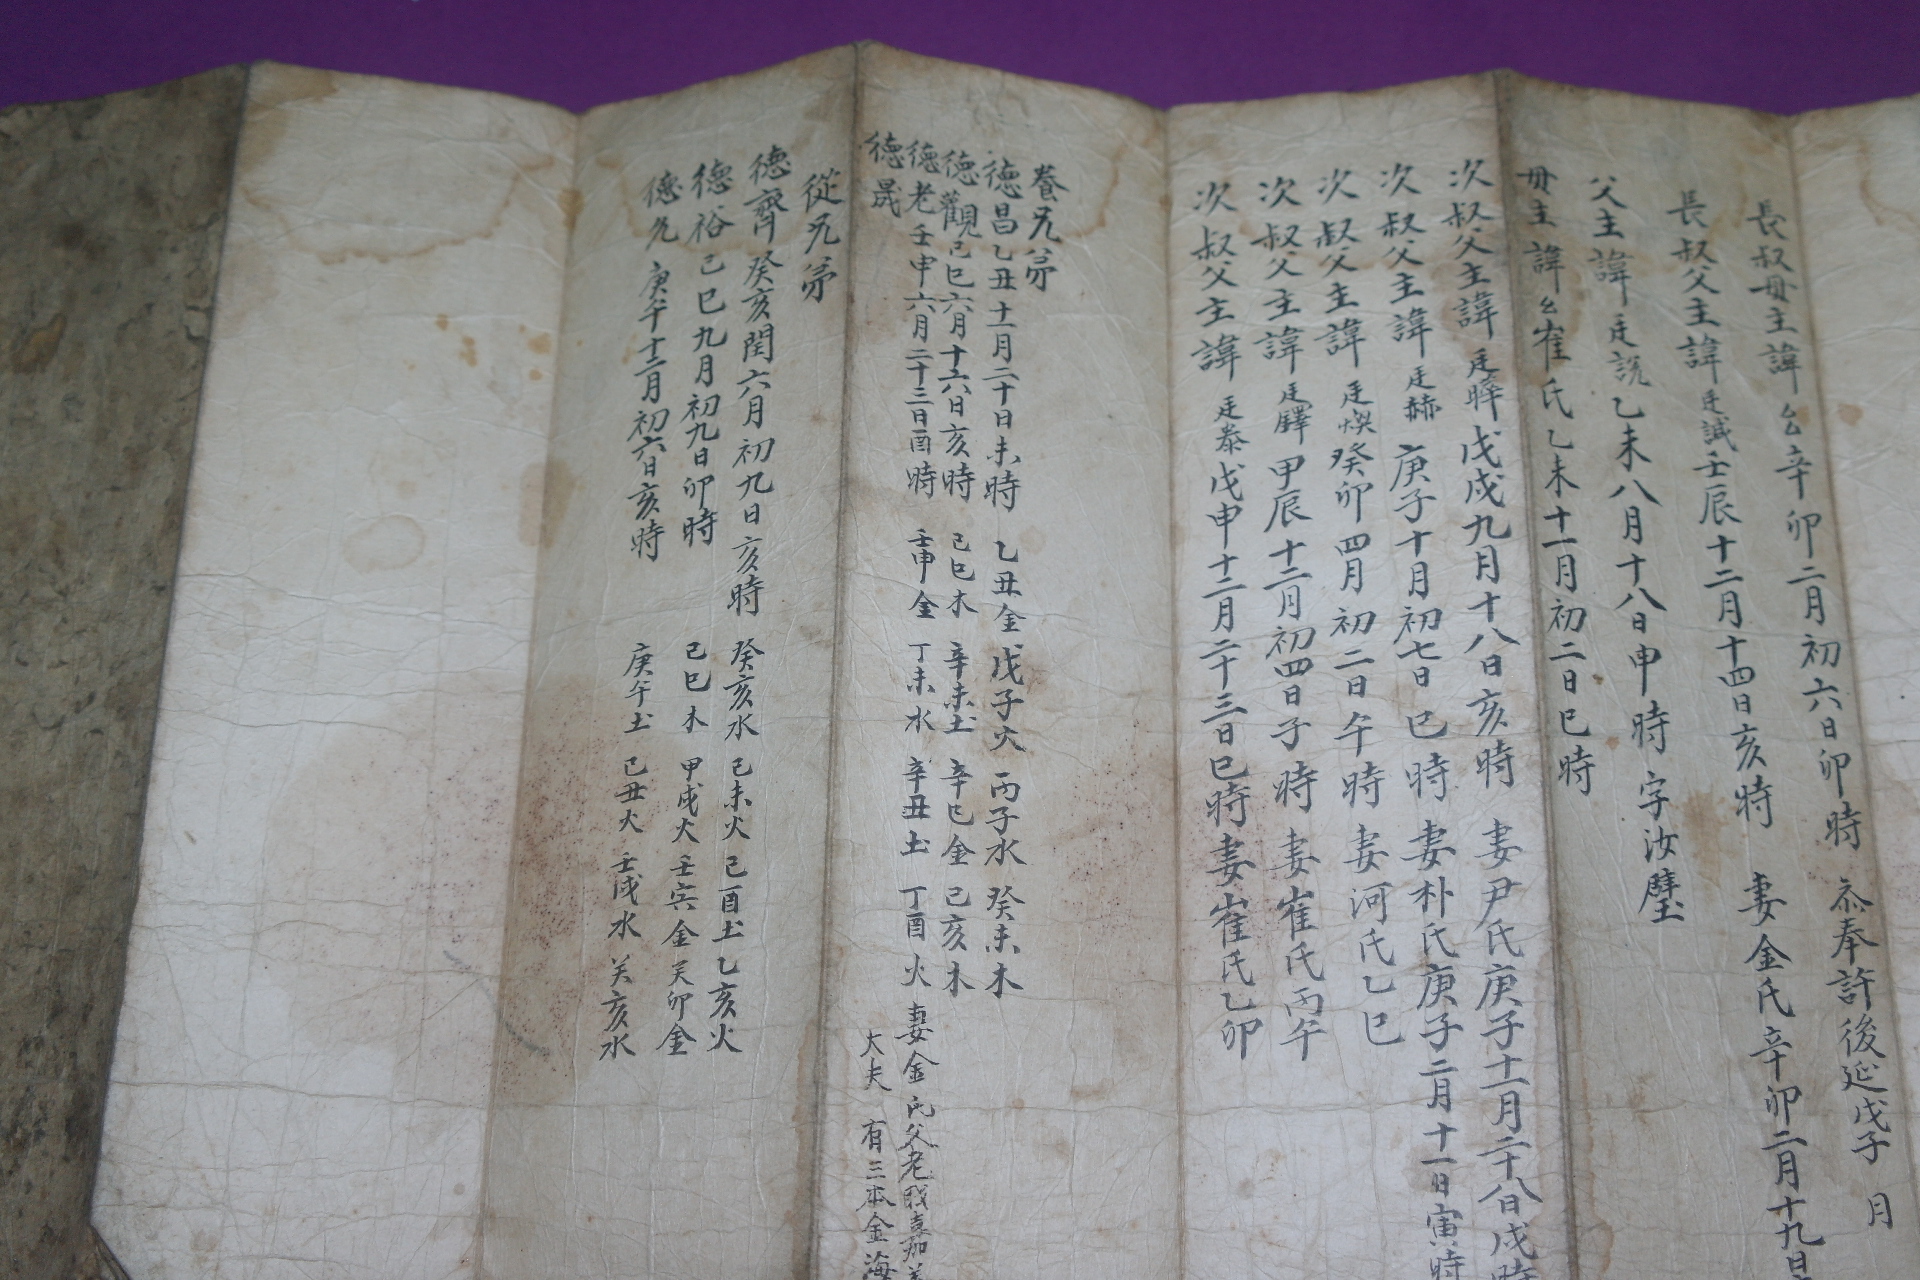 長叔母主諱 辛卯二月初六日卯時 奉許後延戊子 月
長叔父主諱廷誠壬辰十二月十四日亥時 妻金氏辛卯二月十九日
父主諱廷說乙未八月十八日申時 字汝璧
母主諱 崔氏乙未十一月初二日巳時
次叔父主諱廷暉戊戌九月十八日亥時 妻尹氏庚子十一月二十八日戌時
次叔父主諱廷赫庚子十月初七日巳時 妻朴氏庚子二月十一日寅時
次叔父主諱廷煥癸卯四月初二日午時 妻河氏乙巳
次叔父主諱廷鐸甲辰十二月初四日子時 妻崔氏丙午
次叔父主諱廷泰戊申十二月二十三日巳時 妻崔氏乙卯
養兄弟
德昌乙丑十一月二十日未時 乙丑金 戊子火 丙子水 癸未木
德觀己巳六月十六日亥時 己巳木 辛未土 辛巳金 己亥木
德老壬申六月二十三日酉時 壬申金 丁未水 辛丑土 丁酉火 妻金氏父老職嘉
德晟 大夫 有三本金海
從兄弟
德齊癸亥閏六月初九日亥時 癸亥水 己未火 己酉土 乙亥火
德裕己巳九月初九日卯時 己巳木 甲戌火 壬寅金 癸卯金
德允庚午十二月初六日亥時 庚午土 己丑火 壬戌水 癸亥水